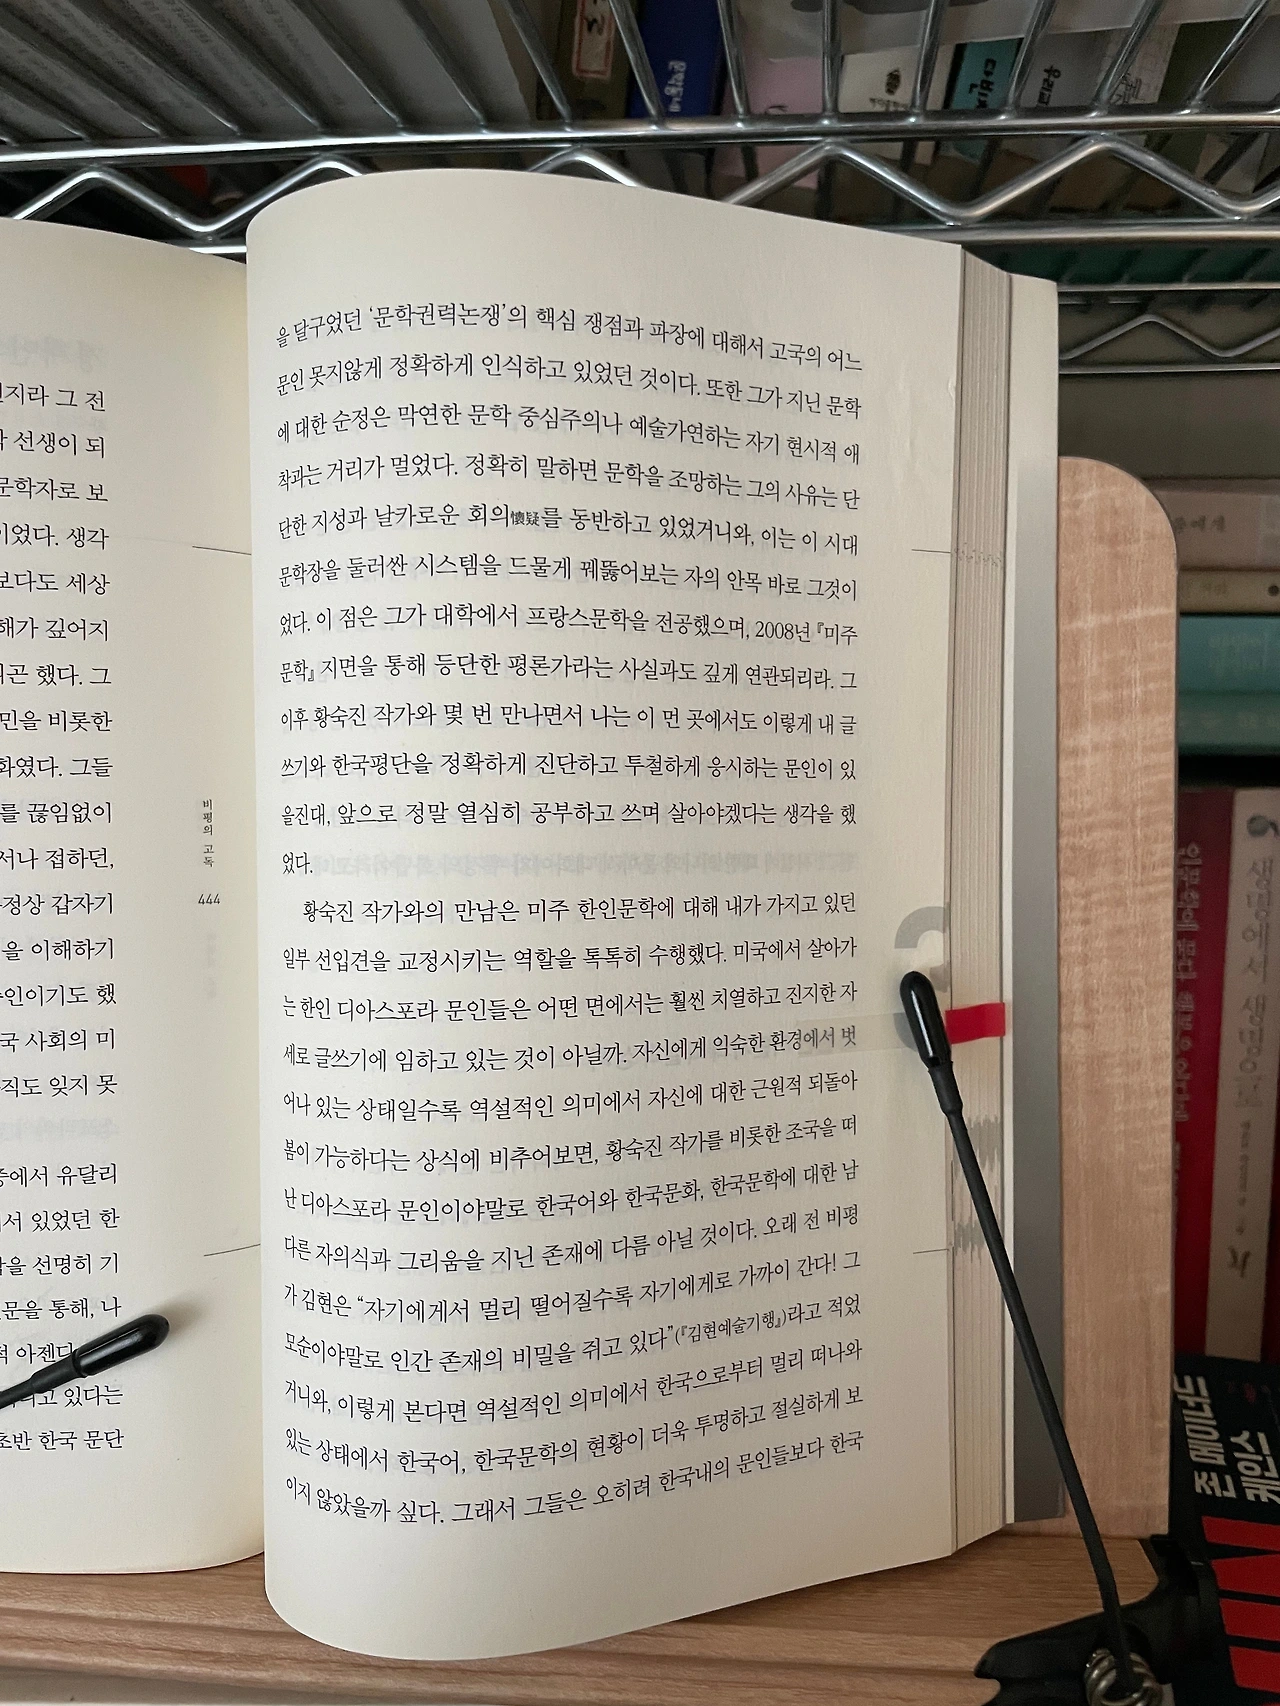 지라 그 전
선생이 되
문학자로 보
이었다. 생각
보다도 세상
해가 깊어지
곤 했다. 그
민을 비롯한
화였다. 그들
를 끊임없이
서나 접하던,
정상 갑자기
을 이해하기
인이기도 했
국 사회의 미
직도 잊지 못
중에서 유달리
서 있었던 한
을 선명히 기
문을 통해, 나
적 아젠다
고 있다는
초반 한국 문단
비평의 고독
444
을 달구었던 ‘문학권력논쟁’의 핵심 쟁점과 파장에 대해서 고국의 어느
문인 못지않게 정확하게 인식하고 있었던 것이다. 또한 그가 지닌 문학
에 대한 순정은 막연한 문학 중심주의나 예술가연하는 자기 현시적 애
착과는 거리가 멀었다. 정확히 말하면 문학을 조망하는 그의 사유는 단
단한 지성과 날카로운 회의懷疑를 동반하고 있었거니와, 이는 이 시대
문학장을 둘러싼 시스템을 드물게 꿰뚫어보는 자의 안목 바로 그것이
었다. 이 점은 그가 대학에서 프랑스문학을 전공했으며, 2008년 『미주
문학』 지면을 통해 등단한 평론가라는 사실과도 깊게 연관되리라. 그
이후 황숙진 작가와 몇 번 만나면서 나는 이 먼 곳에서도 이렇게 내 글
쓰기와 한국평단을 정확하게 진단하고 투철하게 응시하는 문인이 있
을진대, 앞으로 정말 열심히 공부하고 쓰며 살아야겠다는 생각을 했
었다.
황숙진 작가와의 만남은 미주 한인문학에 대해 내가 가지고 있던
일부 선입견을 교정시키는 역할을 톡톡히 수행했다. 미국에서 살아가
는 한인 디아스포라 문인들은 어떤 면에서는 훨씬 치열하고 진지한 자
세로 글쓰기에 임하고 있는 것이 아닐까. 자신에게 익숙한 환경에서 벗
어나 있는 상태일수록 역설적인 의미에서 자신에 대한 근원적 되돌아
봄이 가능하다는 상식에 비추어보면, 황숙진 작가를 비롯한 조국을 떠
난 디아스포라 문인이야말로 한국어와 한국문화, 한국문학에 대한 남
다른 자의식과 그리움을 지닌 존재에 다름 아닐 것이다. 오래 전 비평
가 김현은 “자기에게서 멀리 떨어질수록 자기에게로 가까이 간다! 그
모순이야말로 인간 존재의 비밀을 쥐고 있다”(『김현예술기행』)라고 적었
거니와, 이렇게 본다면 역설적인 의미에서 한국으로부터 멀리 떠나와
있는 상태에서 한국어, 한국문학의 현황이 더욱 투명하고 절실하게 보
이지 않았을까 싶다. 그래서 그들은 오히려 한국내의 문인들보다 한국
생명에서 생명으로
존 메이너드
케인스